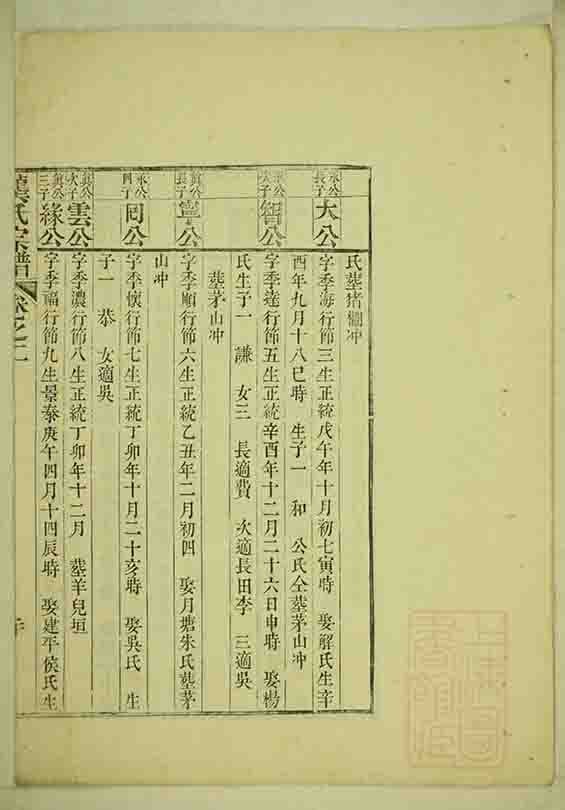 氏墓猪欄冲
永公長子
大公
字季海行節三生正統戊午年十月初七寅時 娶解氏生辛
酉年九月十八巳時 生子一 和 公氏仝墓茅山冲
永公次子
智公
字季達行節五生正統辛酉年十二月二十六日申時 娶楊
氏生子一 謙 女三 長適費 次適長田李 三適吳
墓茅山冲
寬公長子
寧公
字季順行節六生正統乙丑年二月初四 娶月塘朱氏墓茅
山冲
永公四子
囘公
字季懷行節七生正統丁卯年十月二十亥時 娶吳氏 生
子一 恭 女適吳
次子
雲公
字季濃行節八生正統丁卯年十二月 墓羊兒垣
三子
緣公
字季福行節九生景泰庚午四月十四辰時 娶建平侯氏生
氏宗譜 卷之二